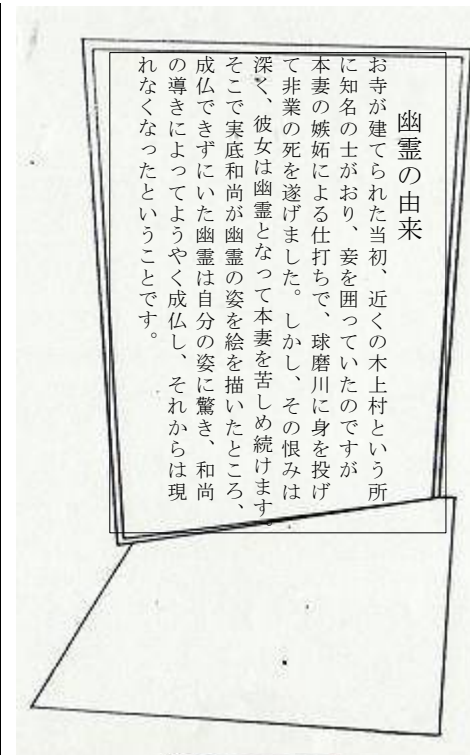 幽霊の由来
お寺が建てられた当初、近くの木上村という所
に知名の士がおり、妾を囲っていたのですが
本妻の嫉妬による仕打ちで、球磨川に身を投げ
て非業の死を遂げました。しかし、その恨みは
深く、彼女は幽霊となって本妻を苦しめ続けます。
そこで実底和尚が幽霊の姿を絵を描いたところ、
成仏できずにいた幽霊は自分の姿に驚き、和尚
の導きによってようやく成仏し、それからは現
れなくなったということです。